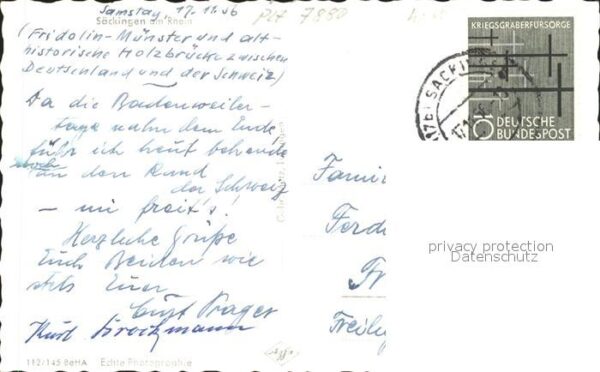 Samstag, 17.11.56
PLZ 7880
Säckingen am Rhein
(Fridolin-Münster und alt-
historische Holzbrücke zwischen
Deutschland und der Schweiz)
Da die Badenweiler-
tage nahm dem Ende,
führ ich heut behende
noch an den Rand
der Schweiz
– mi freit's!
Herzliche Grüße
Euch Beiden wie
stets Euer
Prager
Kurt Brockmann
112/145 BeHA Echte Photographie
KRIEGSGRÄBERFÜRSORGE
10 DEUTSCHE
BUNDESPOST
(17b) SÄCKINGEN
Famil
Ferd
Fr
Freibu
privacy protection
Datenschutz